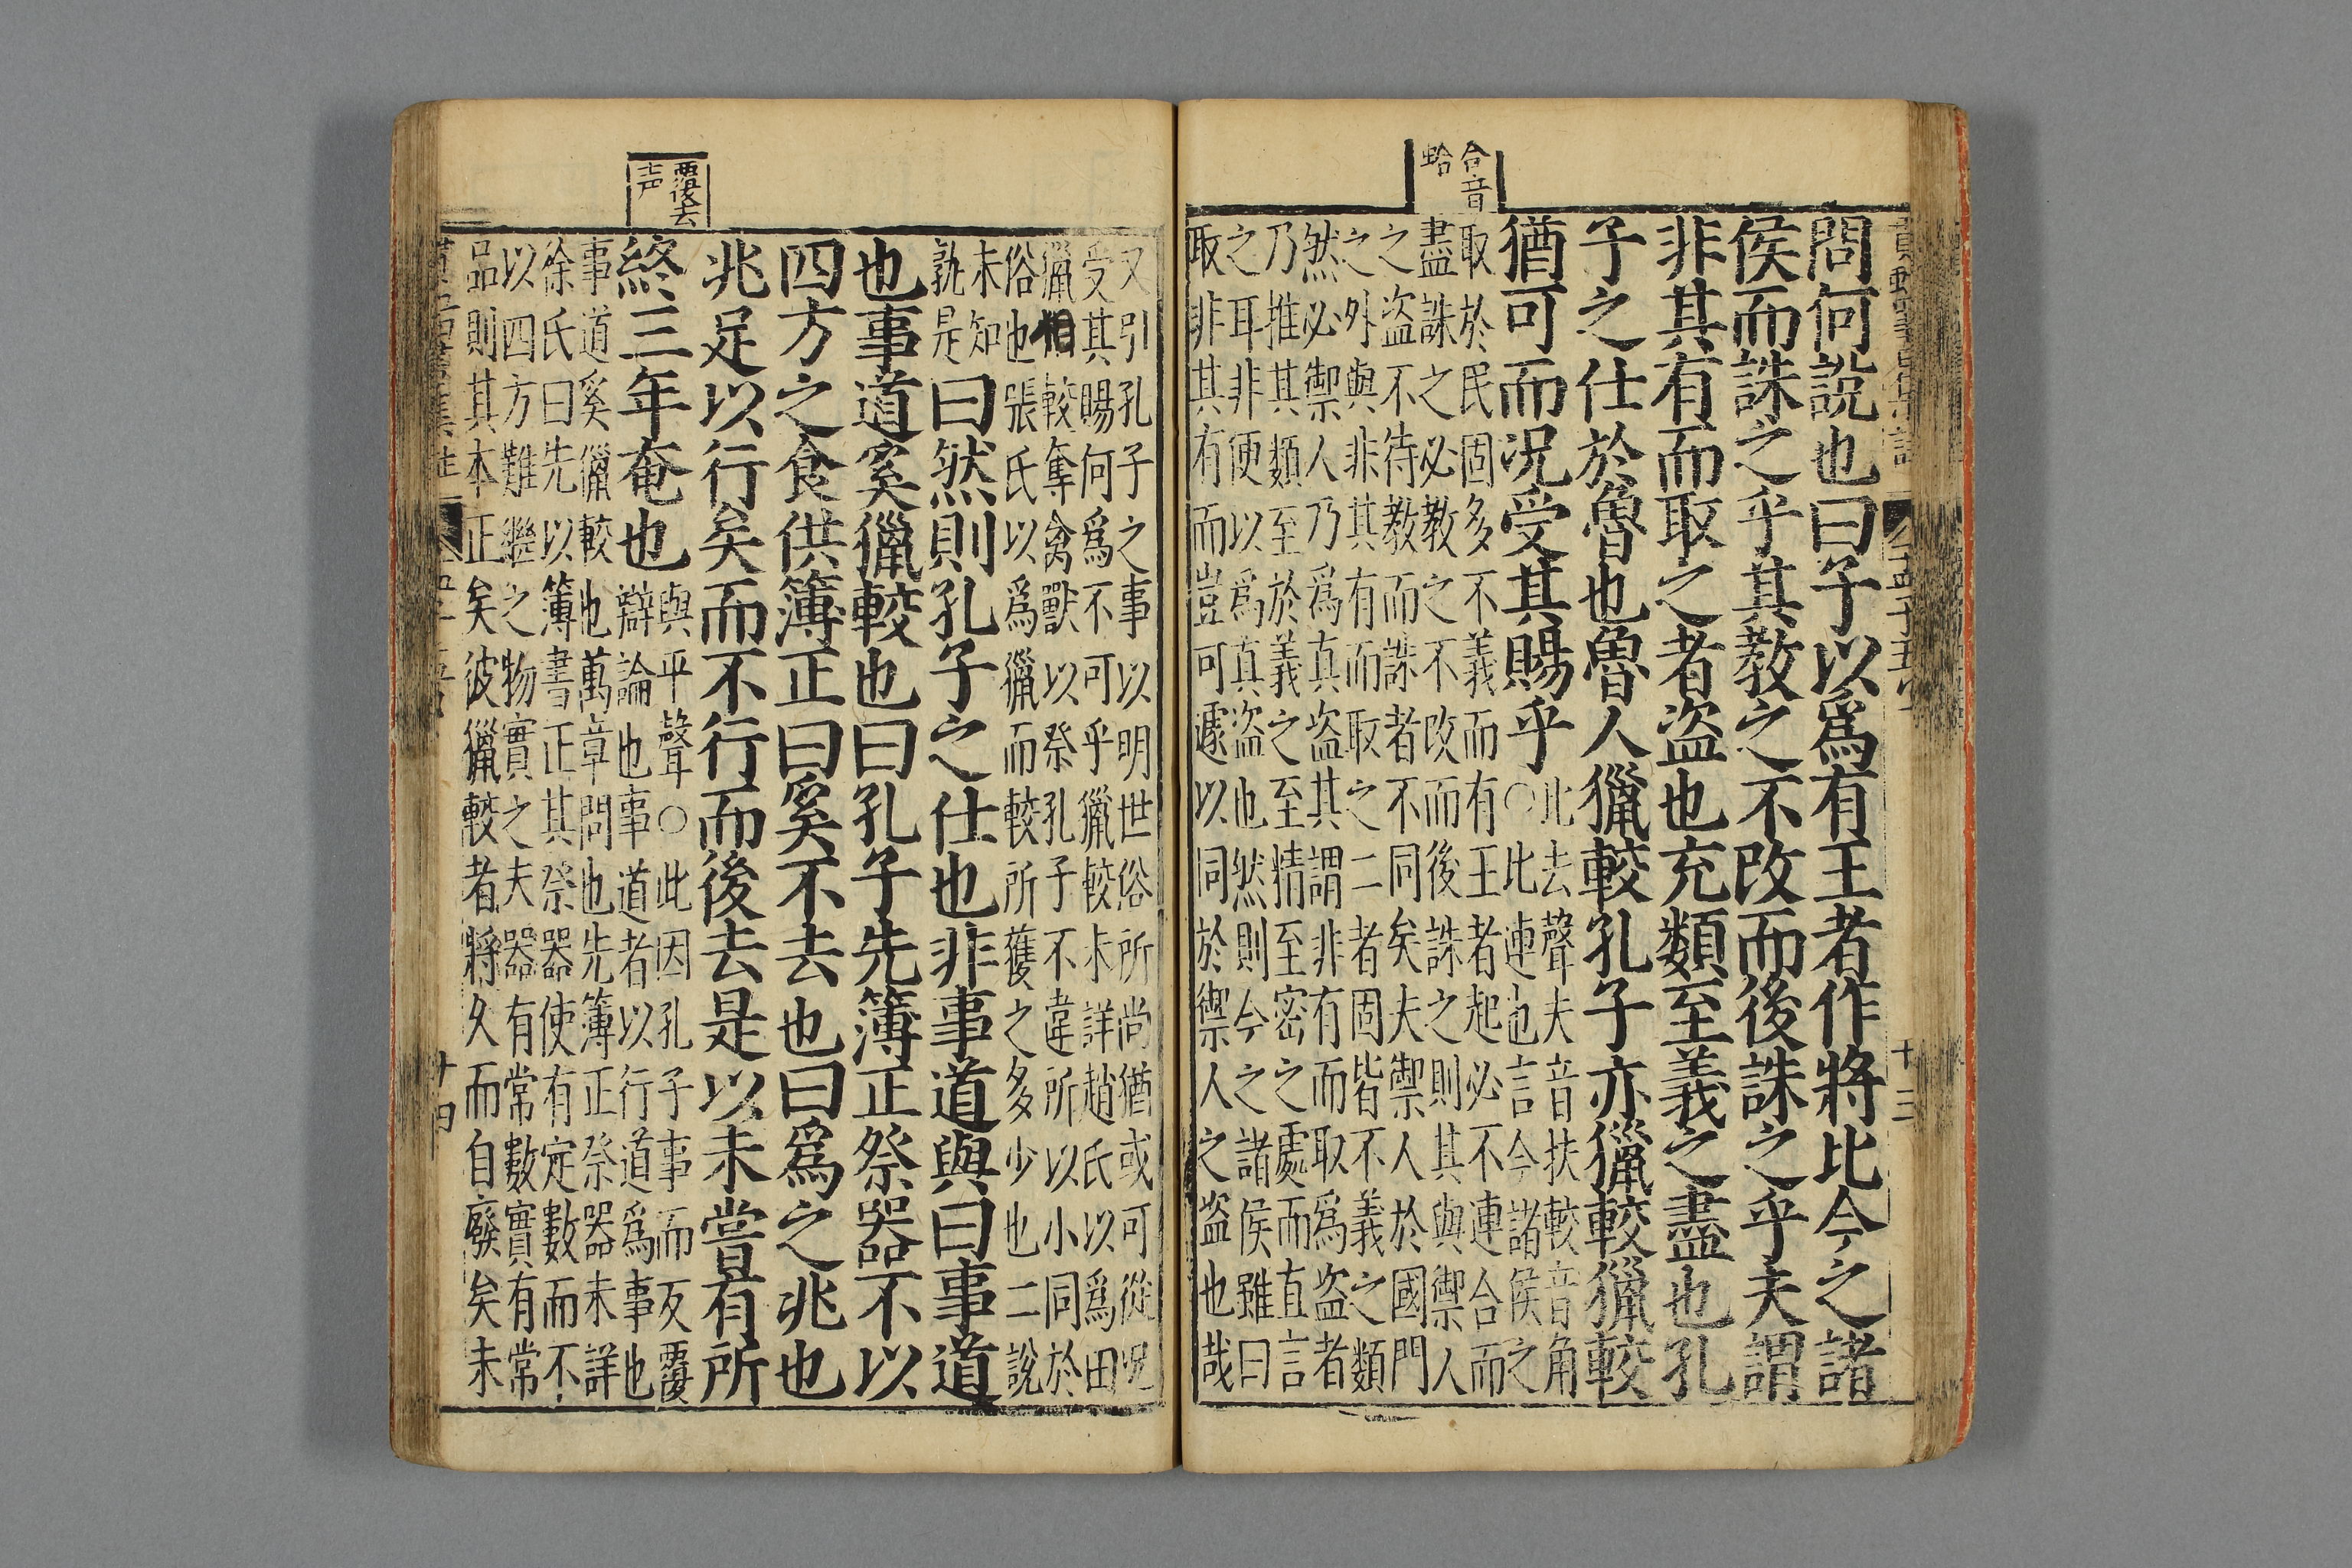 合音
蛤
問何說也曰子以爲有王者作將比今之諸
侯而誅之乎其教之不改而後誅之乎夫謂
非其有而取之者盜也充類至義之盡也孔
子之仕於魯也魯人獵較孔子亦獵較獵較
猶可而況受其賜乎
此去聲夫音扶較音角
○比連也言今諸侯之
取於民固多不義而有王者起必不連合而
盡誅之必教之不改而後誅之則其與禦人
之盜不待教而誅者不同矣夫禦人於國門
之外與非其有而取之二者固皆不義之類
然必禦人乃爲真盜其謂非有而取爲盜者
乃推其類至於義之至精至密之處而直言
之耳非便以爲真盜也然則今之諸侯雖曰
取非其有而豈可遽以同於禦人之盜也哉
十三
覆後去
声
又引孔子之事以明世俗所尚猶或可從況
受其賜何爲不可乎獵較未詳趙氏以爲田
獵相較奪禽獸以祭孔子不違所以小同於
俗也張氏以爲獵而較所獲之多少也二說
未知
孰是
曰然則孔子之仕也非事道與曰事道
也事道奚獵較也曰孔子先簿正祭器不以
四方之食供簿正曰奚不去也曰爲之兆也
兆足以行矣而不行而後去是以未嘗有所
終三年奄也
與平聲○此因孔子事而反覆
辯論也事道者以行道爲事也
事道奚獵較也萬章問也先簿正祭器未詳
徐氏曰先以簿書正其祭器使有定數而不
以四方難繼之物實之夫器有常數實有常
品則其本正矣彼獵較者將久而自廢矣未
十四